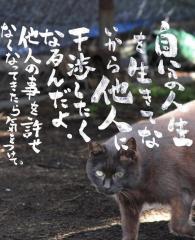 自分の人生
を生きてな
いから他人に
干渉したく
なるんだよ、
他人の事を許せ
なくなってきたら